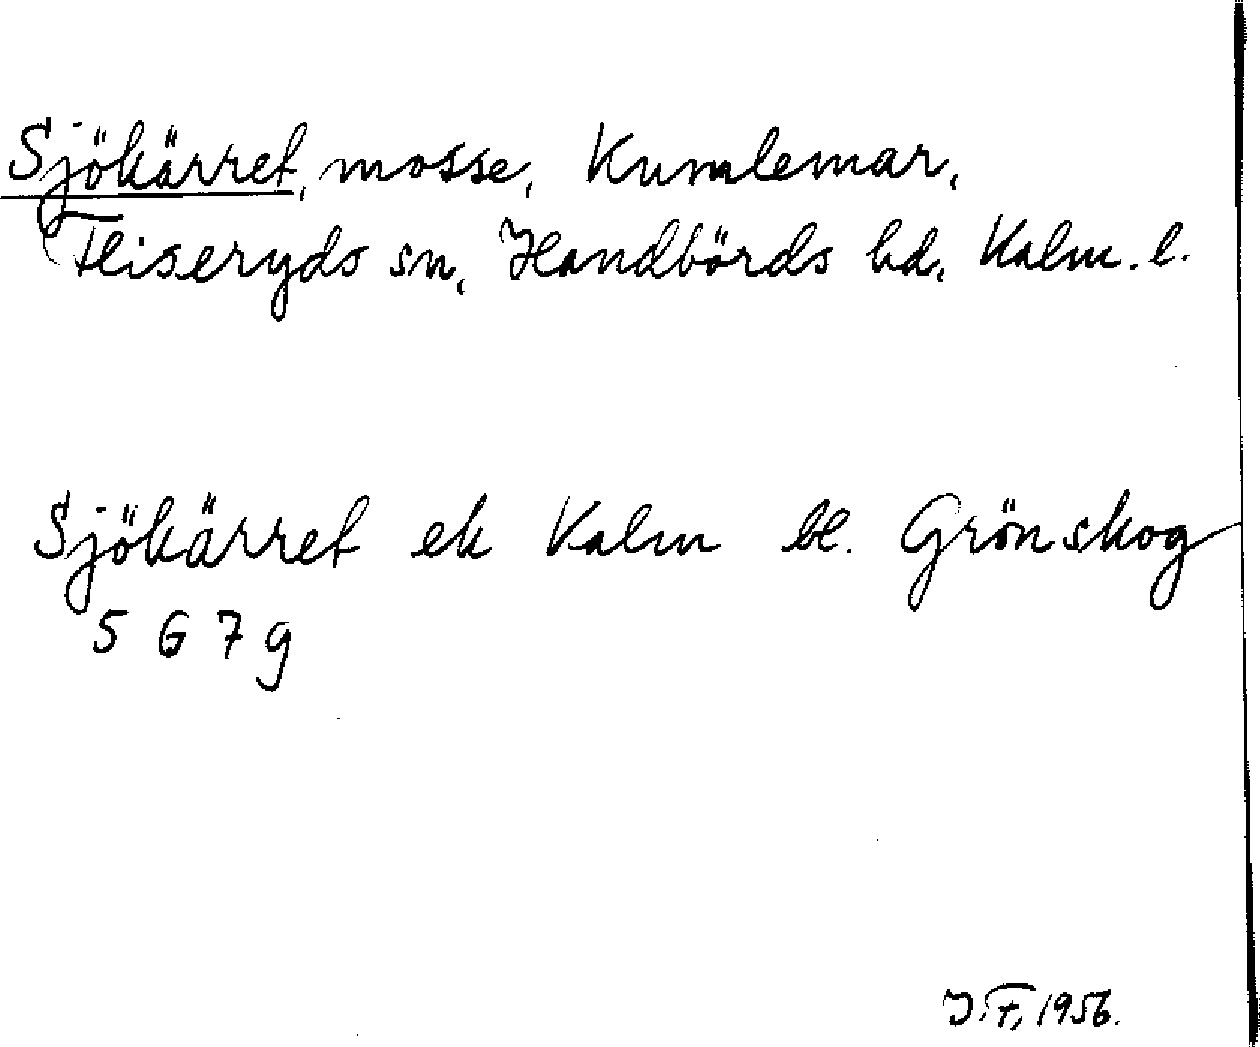 Sjökärret, mosse, Kumlemar,
Fliseryds sn, Handbörds hd, Kalm. l.
Sjökärret ek Kalm bl. Grönskog
5 G 7 g
J.F, 1956.